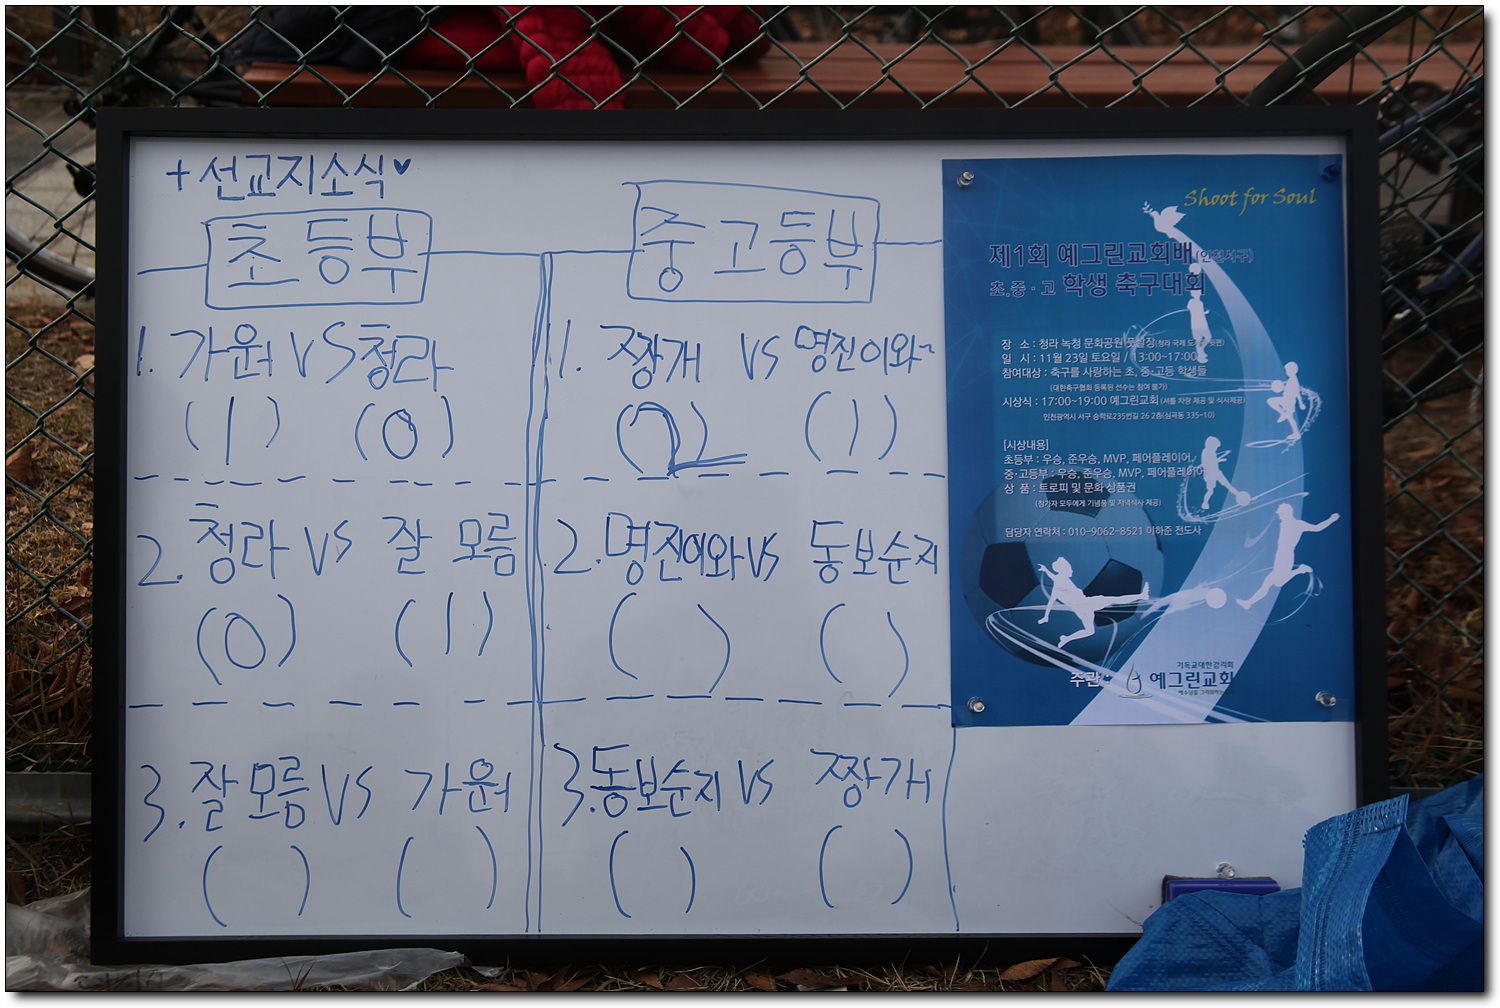 +선교지소식♥
초등부
1. 가원 VS 청라
(1) (0)
2. 청라 VS 잘 모름
(0) (1)
3. 잘모름 VS 가원
( ) ( )
중고등부
1. 짱개 VS 명진이와~
(2) (1)
2. 명진이와 VS 동보순지
( ) ( )
3. 동보순지 VS 짱개
( ) ( )
Shoot for Soul
제1회 예그린교회배(인천서구)
초,중·고 학생 축구대회
장 소 : 청라 녹청 문화공원 풋살장(청라 국제
일 시 : 11월 23일 토요일 / 13:00~17:00
참여대상 : 축구를 사랑하는 초, 중·고등 학생들
(대한축구협회 등록된 선수는 참여 불가)
시상식 : 17:00~19:00 예그린교회 (셔틀 차량 제공 및 식사제공)
인천광역시 서구 승학로235번길 26 2층(심곡동 335-10)
[시상내용]
초등부 : 우승, 준우승, MVP, 페어플레이어,
중·고등부 : 우승, 준우승, MVP, 페어플레이어
상 품 : 트로피 및 문화 상품권
(참가자 모두에게 기념품 및 저녁식사 제공)
담당자 연락처 : 010-9062-8521 이하준 전도사
주관
기독교대한감리회
예그린교회